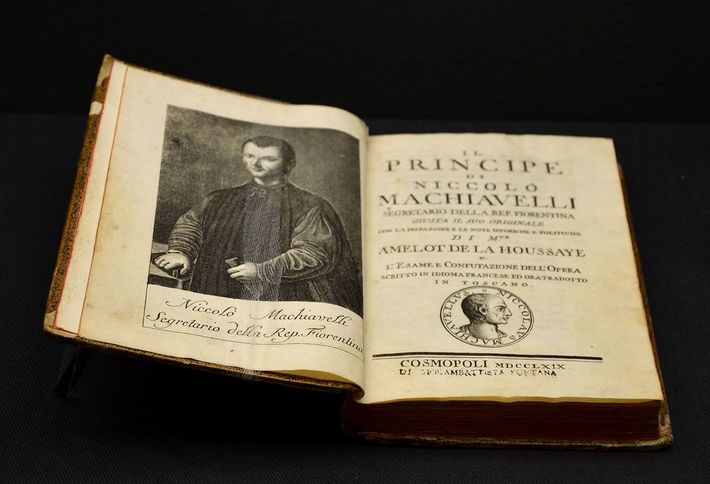 Niccolò Machiavelli
Segretario della Rep. Fiorentina
IL
PRINCIPE
DI
NICCOLÒ
MACHIAVELLI
SEGRETARIO DELLA REP. FIORENTINA
GIUSTA IL SUO ORIGINALE
CON LA PREFAZIONE E LE NOTE ISTORICHE E POLITICHE
DI M.
AMELOT DE LA HOUSSAYE
e
L'ESAME E CONFUTAZIONE DELL'OPERA
SCRITTO IN IDIOMA FRANCESE ED ORA TRADOTTO
IN TOSCANO.
NICCOLAVS MACHIAVELLVS
COSMOPOLI MDCCLXIX
FONTANA